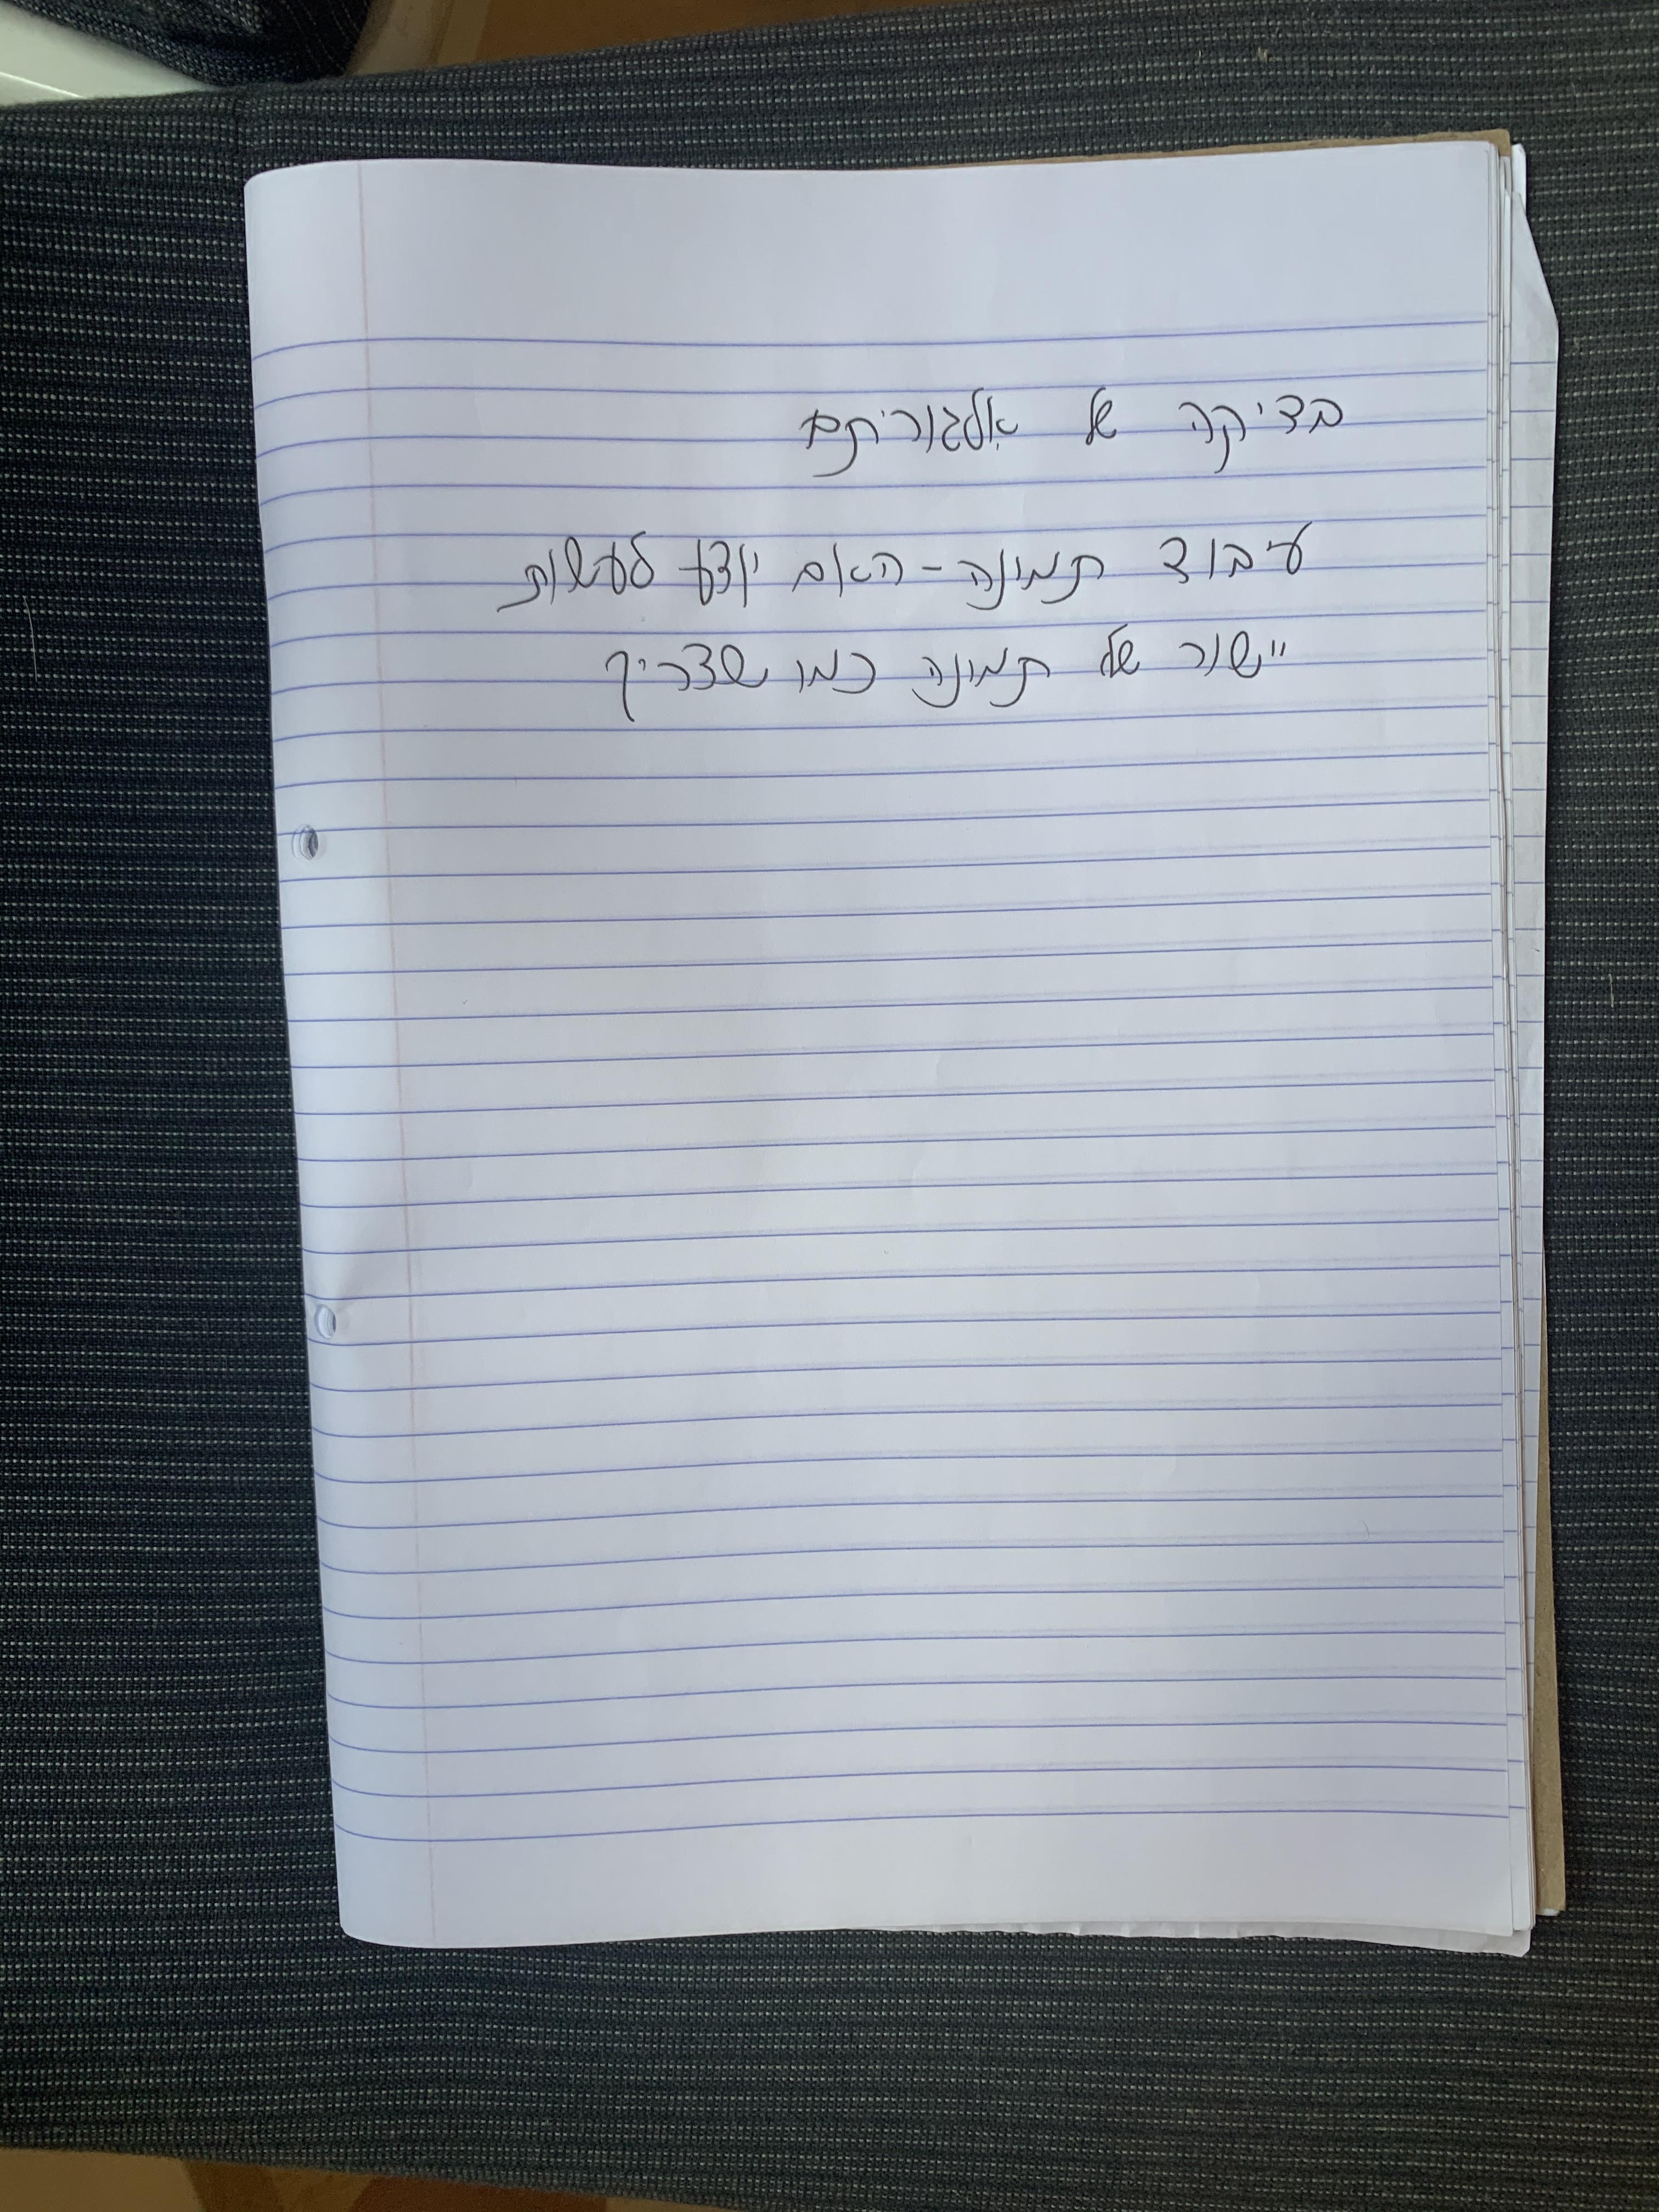 בדיקה של אלגוריתם
עיבוד תמונה - האם יודע לעשות
יישור של תמונה כמו שצריך